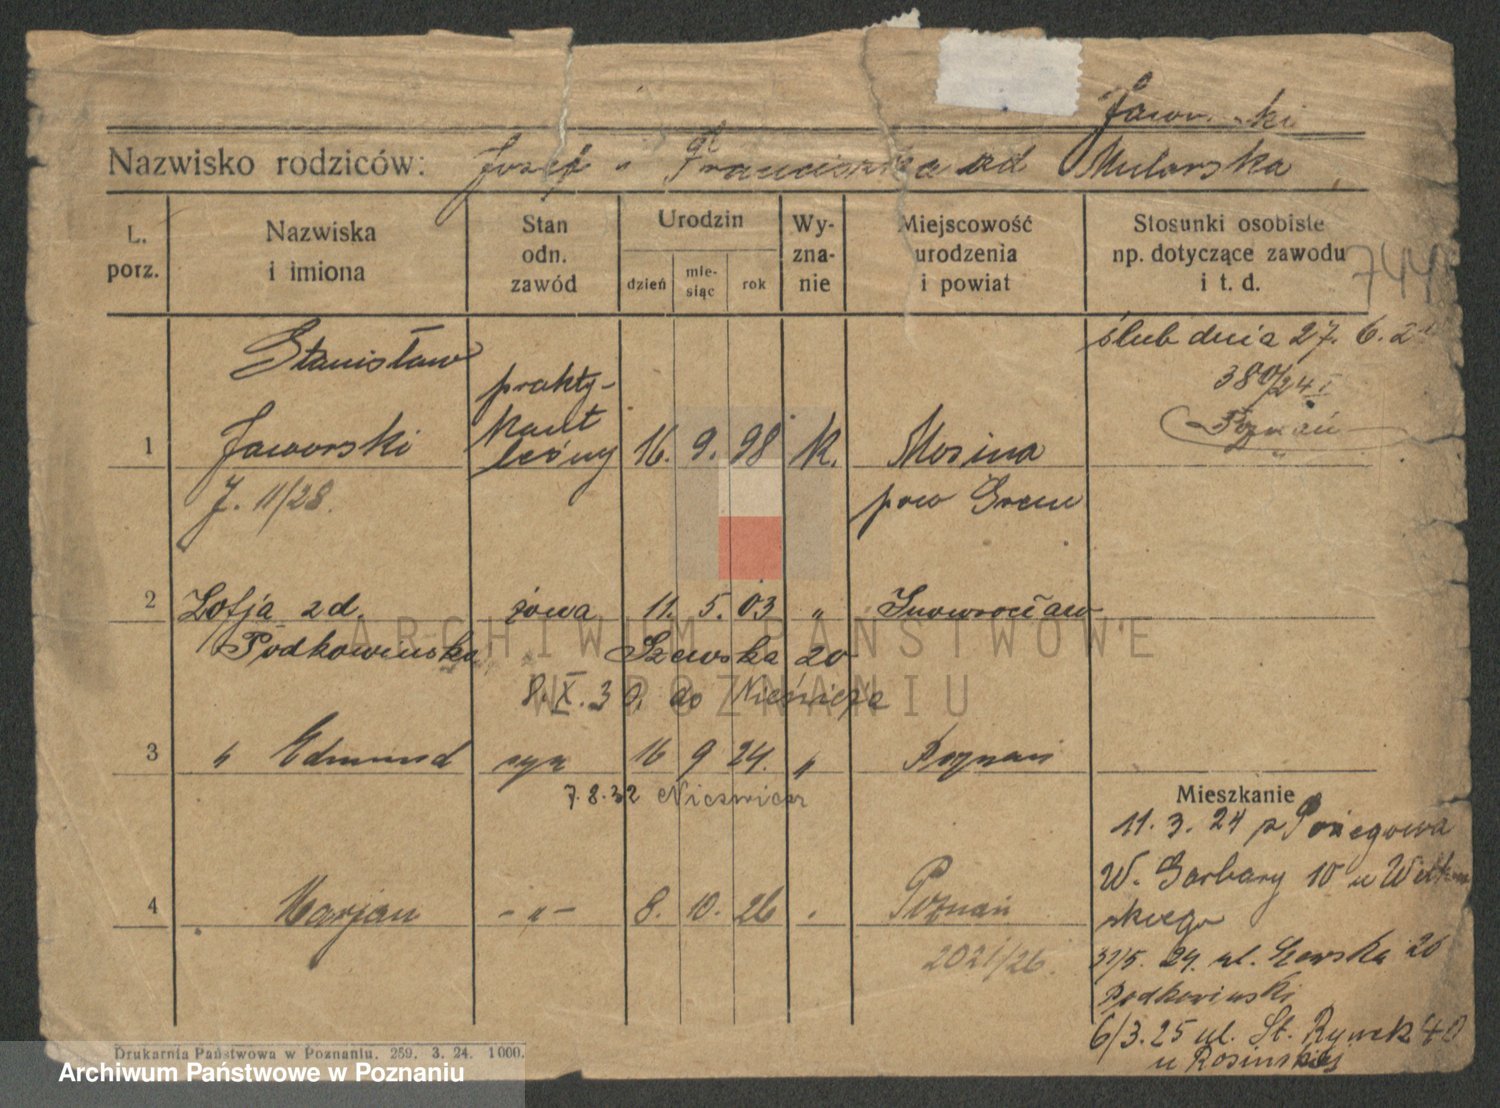 Jawor ki
Nazwisko rodziców: Józef i Franciszka zd Mularska
L. porz.
Nazwiska i imiona
Stan odn. zawód
Urodzin
dzień
mie-siąc
rok
Wy-zna-nie
Miejscowość urodzenia i powiat
Stosunki osobiste np. dotyczące zawodu i t. d.
744
1
Stanisław
Jaworski
J. 11/28.
prakty-
kant
leśny
16. 9. 98
K.
Mosina
pow Śrem
ślub dnia 27. 6. 2
380/24 I
Poznań
2 Zofja zd. żona 11. 5. 03 " Inowrocław
Podkowińska Szewska 20
8. X. 30. do Nieświeża
3 " Edmund syn 16 9 24. " Poznań
7.8.32 Nieświież
4 Marjan -"- 8. 10. 26 " Poznań
2021/26.
Mieszkanie
11. 3. 24 z
W. Garbary 10 u
skiego
31/5. 24. ul. Szewska 20
Podkowiński
6/3.25 ul. St. Rynek 40
u Rosińskiej
Drukarnia Państwowa w Poznaniu. 259. 3. 24. 1000.
ARCHIWUM PAŃSTWOWE
W POZNANIU
Archiwum Państwowe w Poznaniu